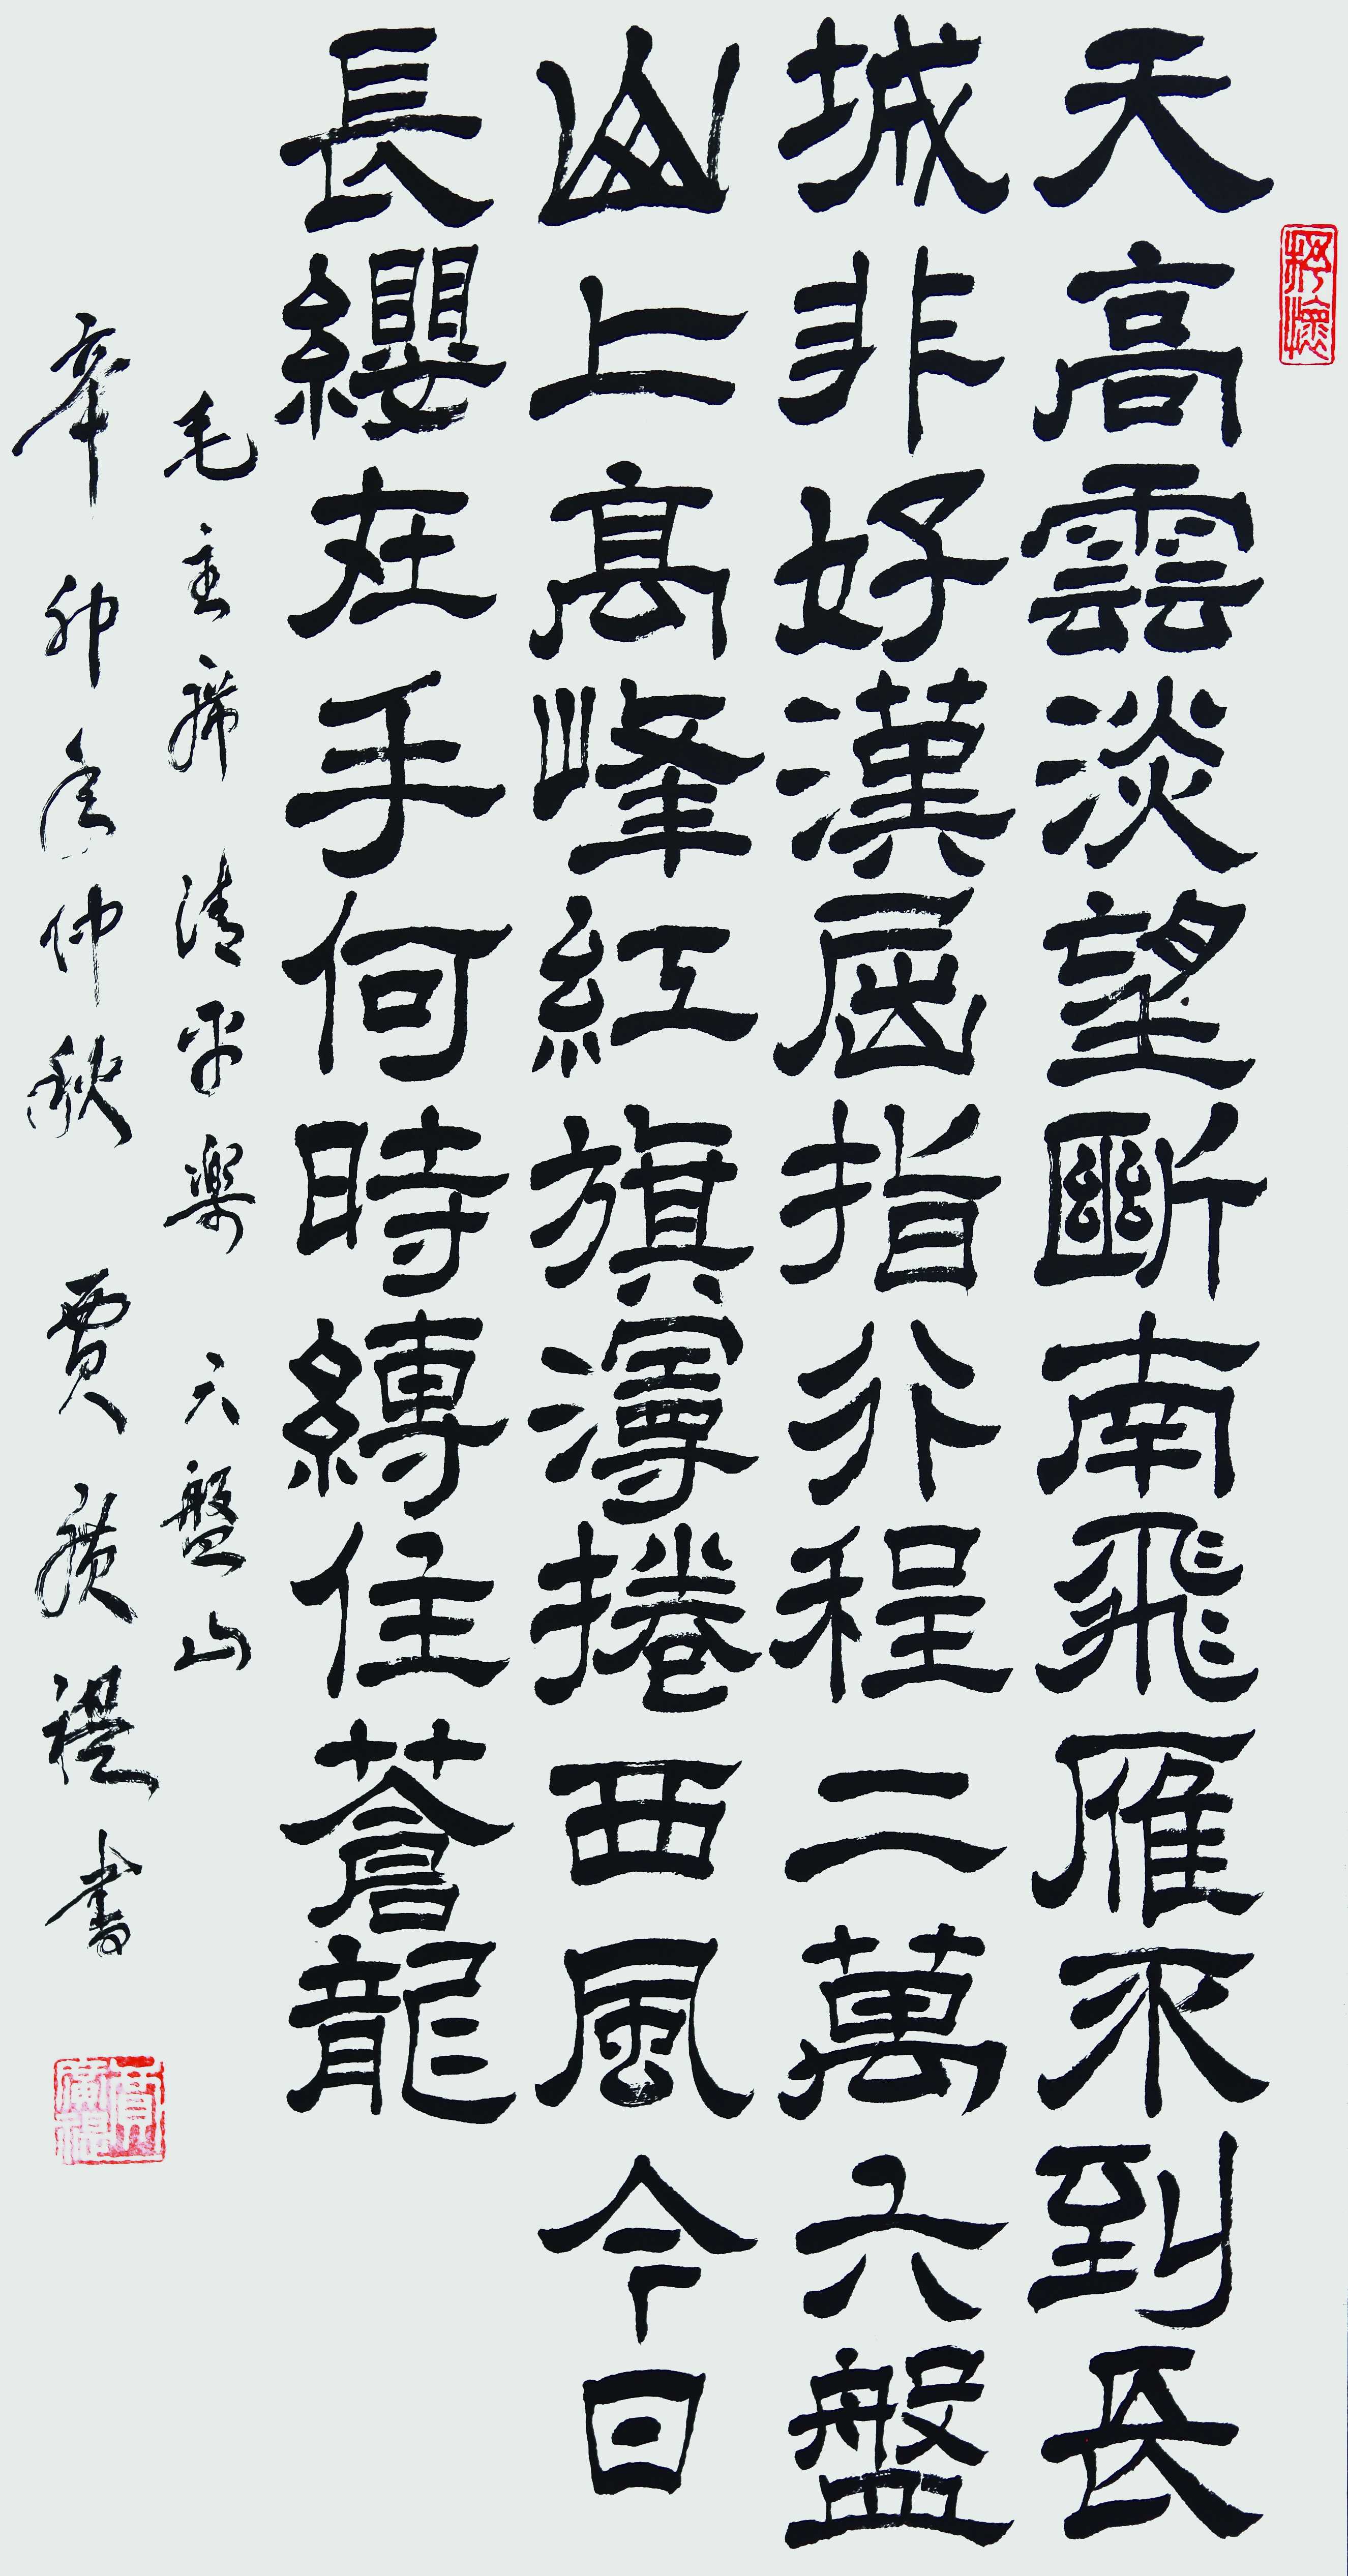 天高雲淡望斷南飛雁不到長
城非好漢屈指行程二萬六盤
山上高峰紅旗漫捲西風今日
長纓在手何時縛住蒼龍
毛主席清平樂六盤山
辛卯年仲秋賈廣禔書